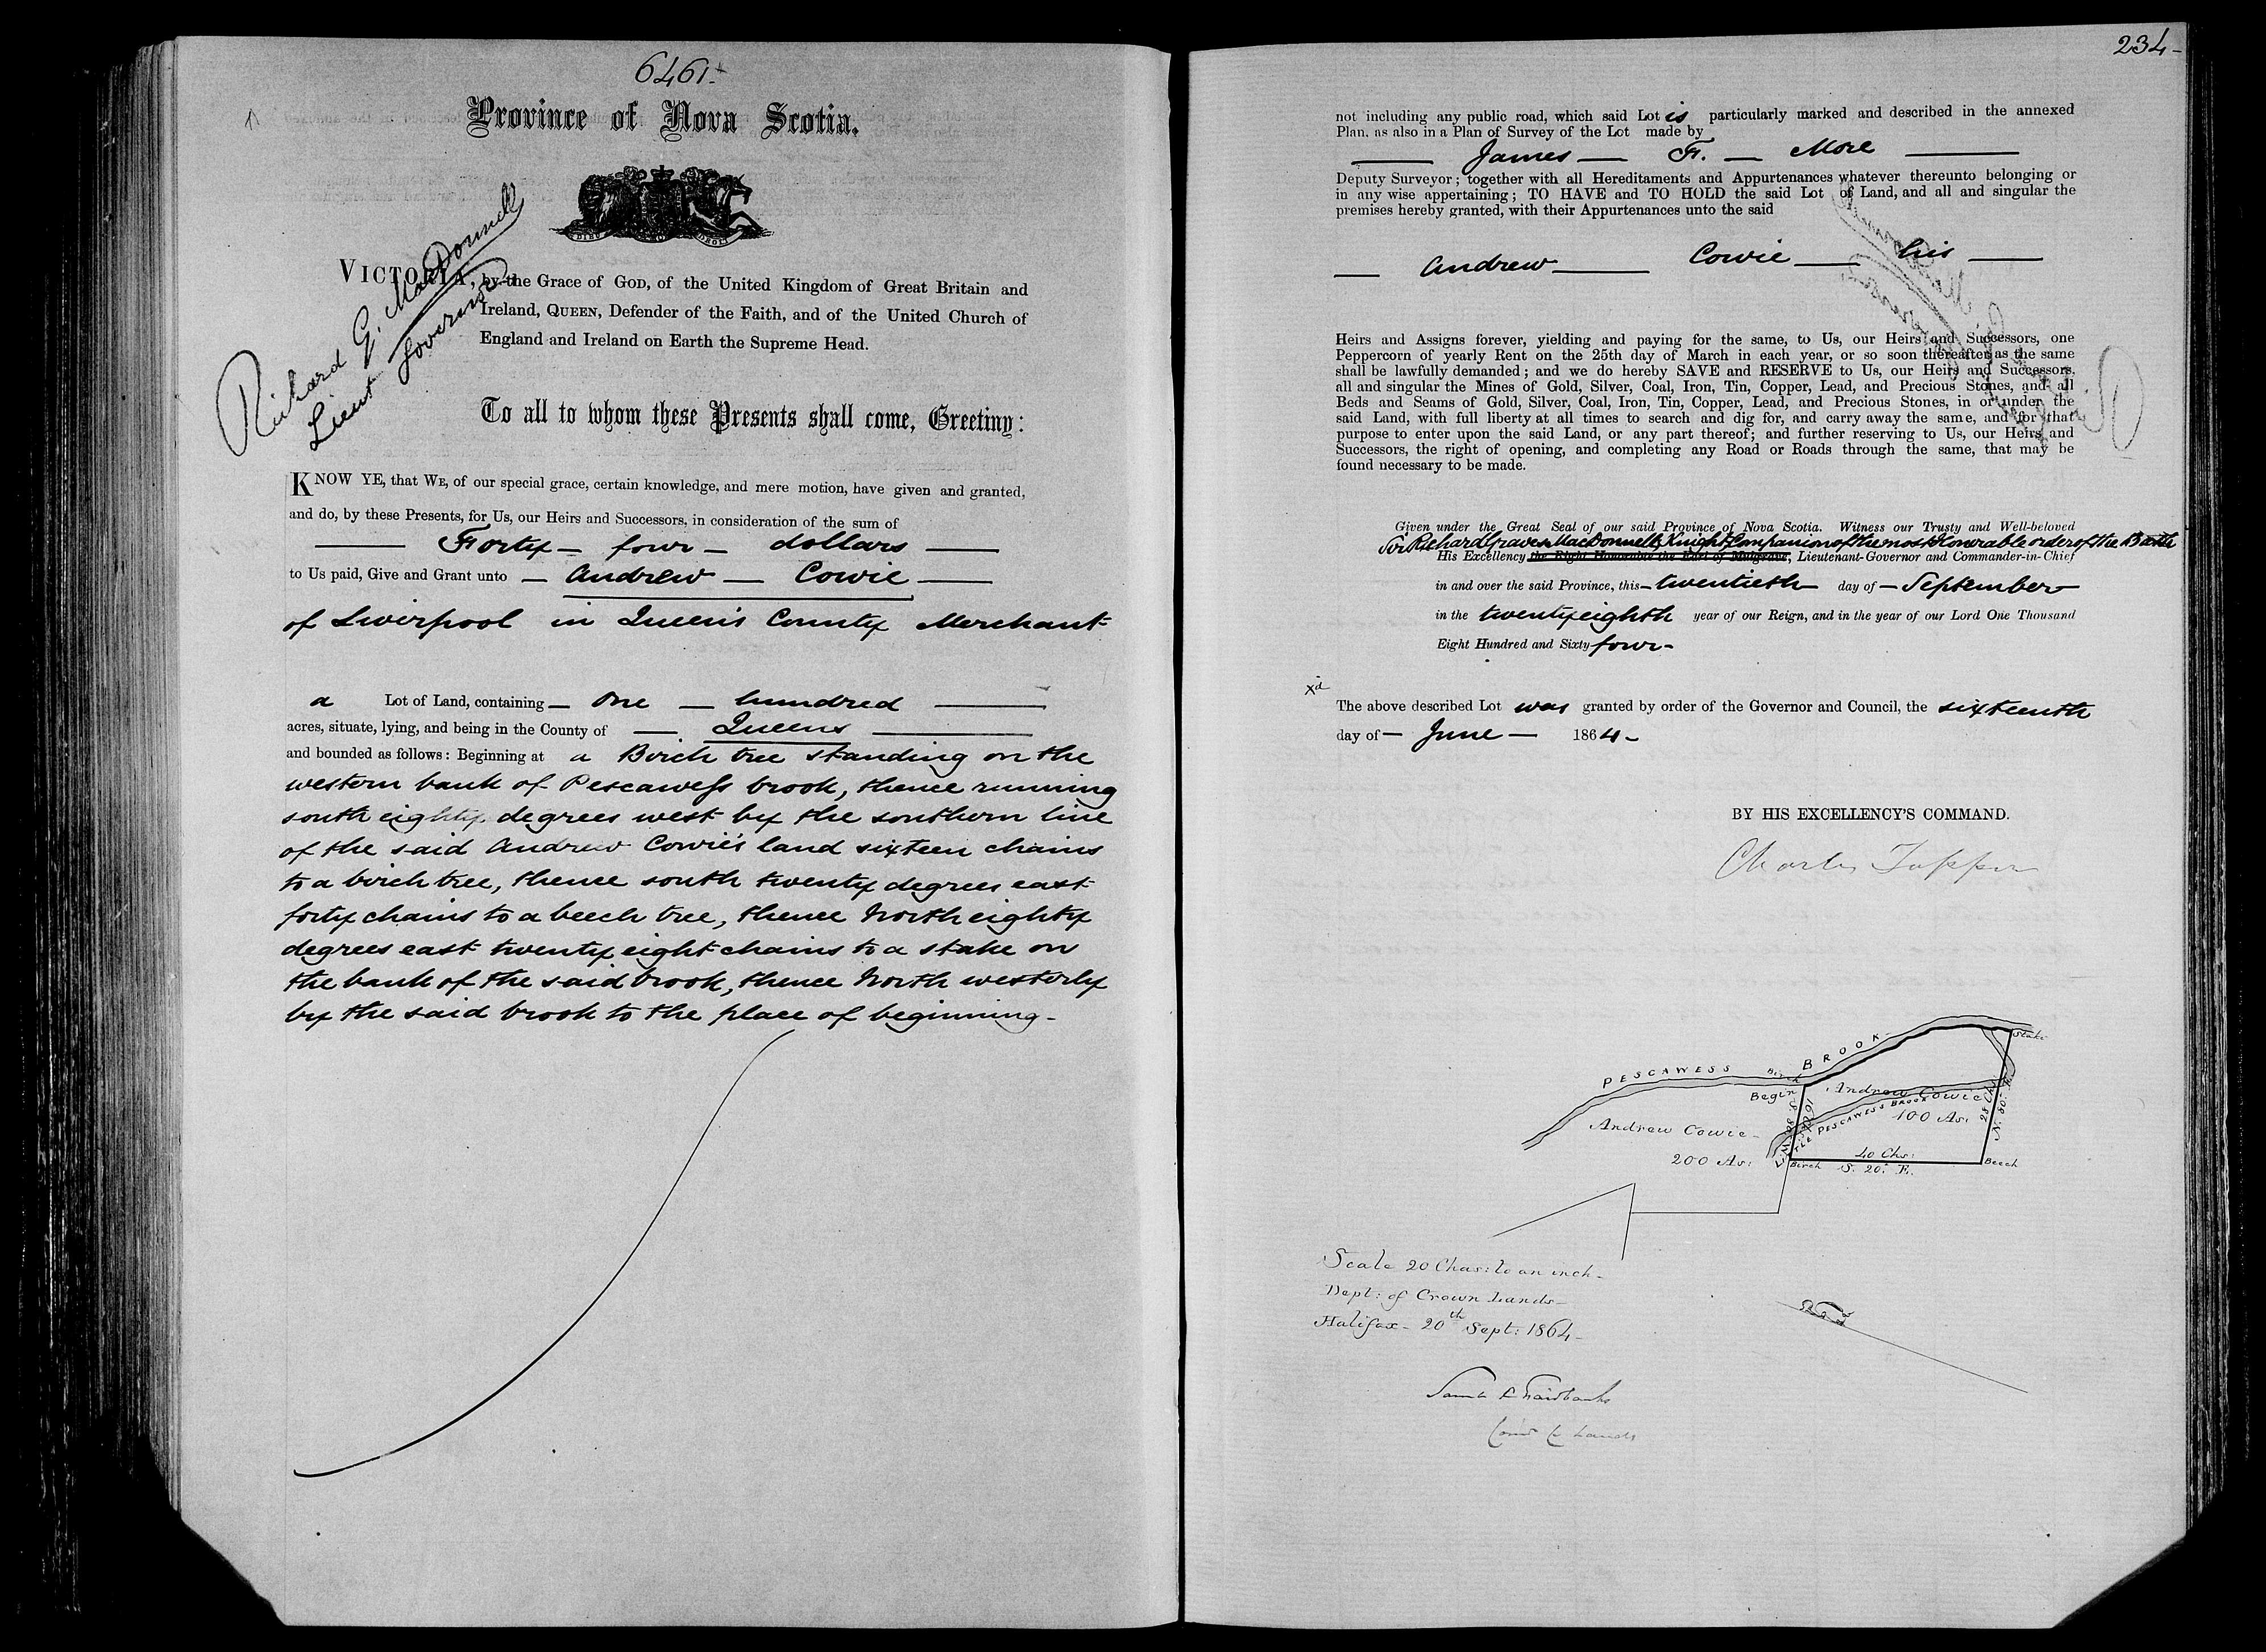 6461.
Province of Nova Scotia.
Richard G. MacDonnell
Lieut Governor
VICTORIA, by the Grace of GOD, of the United Kingdom of Great Britain and
Ireland, QUEEN, Defender of the Faith, and of the United Church of
England and Ireland on Earth the Supreme Head.
To all to whom these Presents shall come, Greeting:
KNOW YE, that WE, of our special grace, certain knowledge, and mere motion, have given and granted,
and do, by these Presents, for Us, our Heirs and Successors, in consideration of the sum of
Forty - four - dollars
to Us paid, Give and Grant unto - Andrew - Cowie
of Liverpool in Queen's County Merchant
a Lot of Land, containing - One - hundred
acres, situate, lying, and being in the County of - Queens
and bounded as follows: Beginning at a Birch tree standing on the
western bank of Pescawess brook, thence running
south eighty degrees west by the southern line
of the said Andrew Cowie's land sixteen chains
to a birch tree, thence south twenty degrees east
forty chains to a beech tree, thence North eighty
degrees east twenty eight chains to a stake on
the bank of the said brook, thence North westerly
by the said brook to the place of beginning -
234
not including any public road, which said Lot is particularly marked and described in the annexed
Plan, as also in a Plan of Survey of the Lot made by
James - F. - More
Deputy Surveyor; together with all Hereditaments and Appurtenances whatever thereunto belonging or
in any wise appertaining; TO HAVE and TO HOLD the said Lot of Land, and all and singular the
premises hereby granted, with their Appurtenances unto the said
Andrew Cowie his
Heirs and Assigns forever, yielding and paying for the same, to Us, our Heirs and Successors, one
Peppercorn of yearly Rent on the 25th day of March in each year, or so soon thereafter as the same
shall be lawfully demanded; and we do hereby SAVE and RESERVE to Us, our Heirs and Successors,
all and singular the Mines of Gold, Silver, Coal, Iron, Tin, Copper, Lead, and Precious Stones, and all
Beds and Seams of Gold, Silver, Coal, Iron, Tin, Copper, Lead, and Precious Stones, in or under the
said Land, with full liberty at all times to search and dig for, and carry away the same, and for that
purpose to enter upon the said Land, or any part thereof; and further reserving to Us, our Heirs and
Successors, the right of opening, and completing any Road or Roads through the same, that may be
found necessary to be made.
Given under the Great Seal of our said Province of Nova Scotia. Witness our Trusty and Well-beloved
Sir Richard Graves MacDonnell, Knight, Companion of the most Honorable order of the Bath
His Excellency the Right Honorable the Earl of Mulgrave, Lieutenant-Governor and Commander-in-Chief
in and over the said Province, this - twentieth day of - September
in the twenty eighth year of our Reign, and in the year of our Lord One Thousand
Eight Hundred and Sixty four -
xd
The above described Lot was granted by order of the Governor and Council, the sixteenth
day of - June - 1864 -
BY HIS EXCELLENCY'S COMMAND.
Charles Tupper
PESCAWESS BROOK
Stake
Birch
Begin
Andrew Cowie
100 As:
LITTLE PESCAWESS BROOK
S. 80. W.
16 Chs
28 Chs
N. 80. E.
Andrew Cowie
200 As:
40 Chs:
Birch S. 20. E. Beech
Scale 20 Chas: to an inch -
Dept: of Crown Lands -
Halifax - 20th Sept: 1864 -
Saml P Fairbanks
Comr C Lands